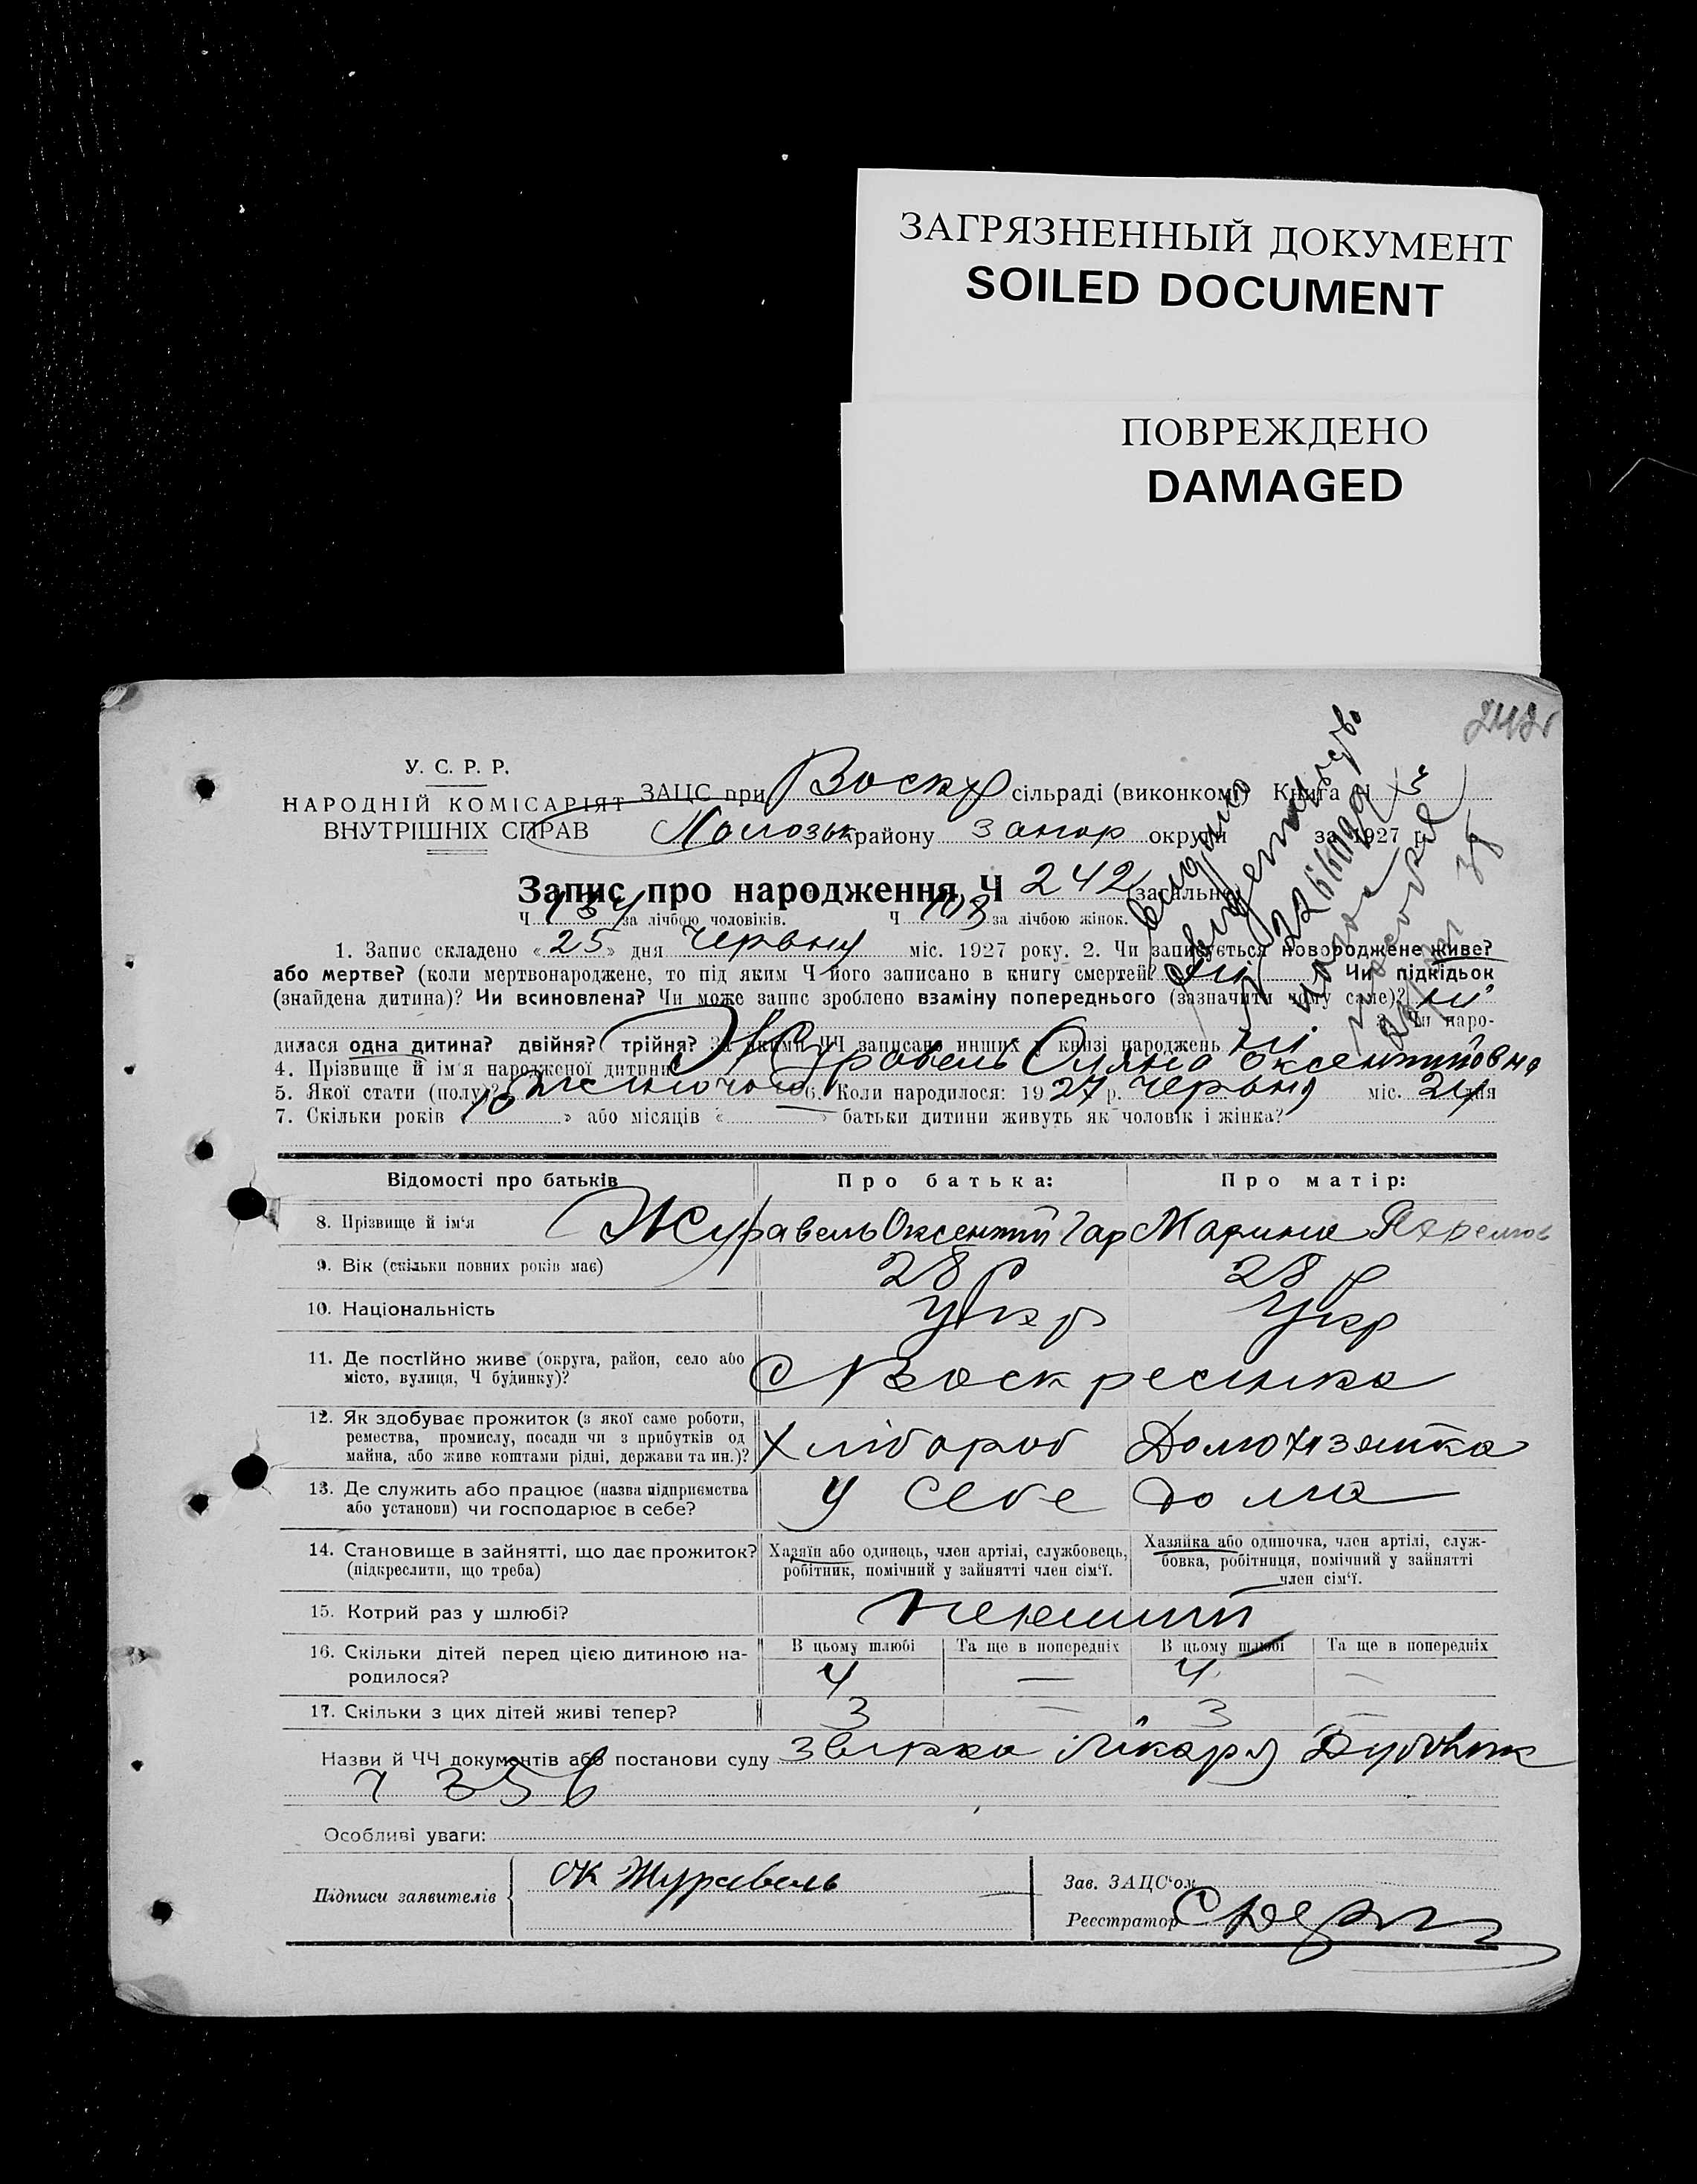 ЗАГРЯЗНЕННЫЙ ДОКУМЕНТ
SOILED DOCUMENT
ПОВРЕЖДЕНО
DAMAGED
У. С. Р. Р.
НАРОДНІЙ КОМІСАРІЯТ
ВНУТРІШНІХ СПРАВ
ЗАЦС при Воскр сільраді (виконкомі) Книга ч 3
району Запор округи за 1927 р.
Запис про народження Ч 242 (загальне)
Ч 134 за лічбою чоловіків. Ч 108 за лічбою жінок.
1. Запис складено «25» дня Червня міс. 1927 року. 2. Чи записується новороджене живе?
або мертве? (коли мертвонароджене, то під яким Ч його записано в книгу смертей? ні ) Чи підкідьок
(знайдена дитина)? Чи всиновлена? Чи може запис зроблено взаміну попереднього (зазначити чому саме)? ні
3. Чи наро-
дилася одна дитина? двійня? трійня? За якими ЧЧ записано инших у книзі народжень ні
4. Прізвище й ім'я народженої дитини Журавель Оляна Оксентиївна
5. Якої стати (полу)? Жіночого 6. Коли народилося: 1927 р. Червня міс. 24 дня
7. Скільки років «10» або місяців «—» батьки дитини живуть як чоловік і жінка?
Відомості про батьків Про батька: Про матір:
8. Прізвище й ім'я Журавель Оксентий Гар Марина Яхремов
9. Вік (скільки повних років має) 28 р 28 р
10. Національність Укр Укр
11. Де постійно живе (округа, район, село або
місто, вулиця, Ч будинку)? С Воскресінка
12. Як здобуває прожиток (з якої саме роботи,
ремества, промислу, посади чи з прибутків од
майна, або живе коштами рідні, держави та ин.)? Хлібороб Домохазяйка
13. Де служить або працює (назва підприємства
або установи) чи господарює в себе? У себе дома
14. Становище в зайнятті, що дає прожиток?
(підкреслити, що треба)
Хазяїн або одинець, член артілі, службовець,
робітник, помічний у зайнятті член сім'ї.
Хазяйка або одиночка, член артілі, служ-
бовка, робітниця, помічний у зайнятті
член сім'ї.
15. Котрий раз у шлюбі?
16. Скільки дітей перед цією дитиною на-
родилося?
В цьому шлюбі Та ще в попередніх В цьому шлюбі Та ще в попередніх
4 — 4 —
17. Скільки з цих дітей живі тепер? 3 — 3 —
Назви й ЧЧ документів або постанови суду лікаря
ч 356
Особливі уваги:
Підписи заявителів ОК Журавель
Зав. ЗАЦС'ом
Реєстратор